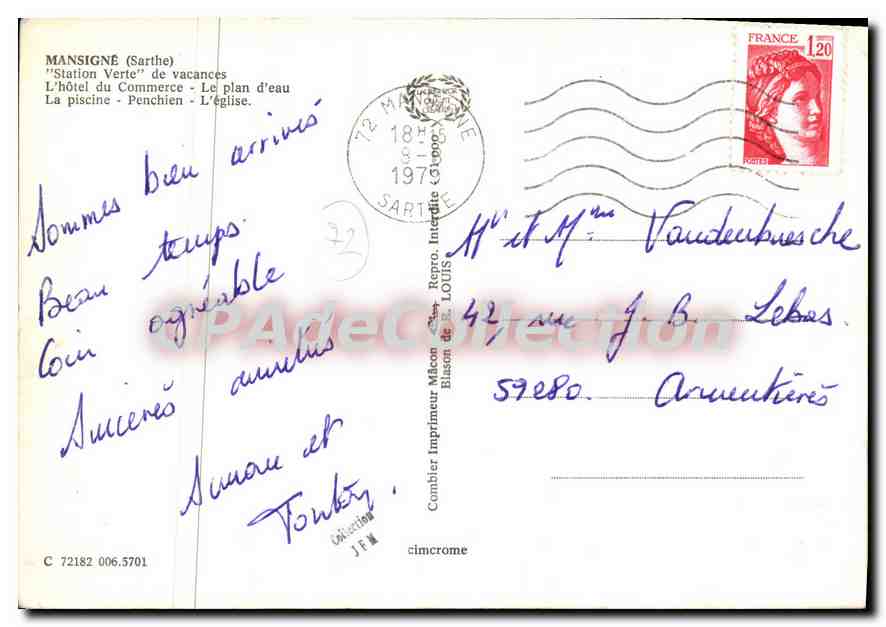 MANSIGNÉ (Sarthe)
"Station Verte" de vacances
L'hôtel du Commerce - Le plan d'eau
La piscine - Penchien - L'église.
Sommes bien arrivés
Beau temps.
Coin agréable
Sincères amitiés
Simon et
C 72182 006.5701
72
72 MANSIGNE
18H
SARTHE
FRANCE
1,20
POSTES
Combier Imprimeur Mâcon Repro. Interdite (71000)
Blason de R. LOUIS
Mr et Mme Vandenbusche
42, rue J. B. Lebas.
59280. Armentières
CPAdeCollection
Collection
JFM
cimcrome